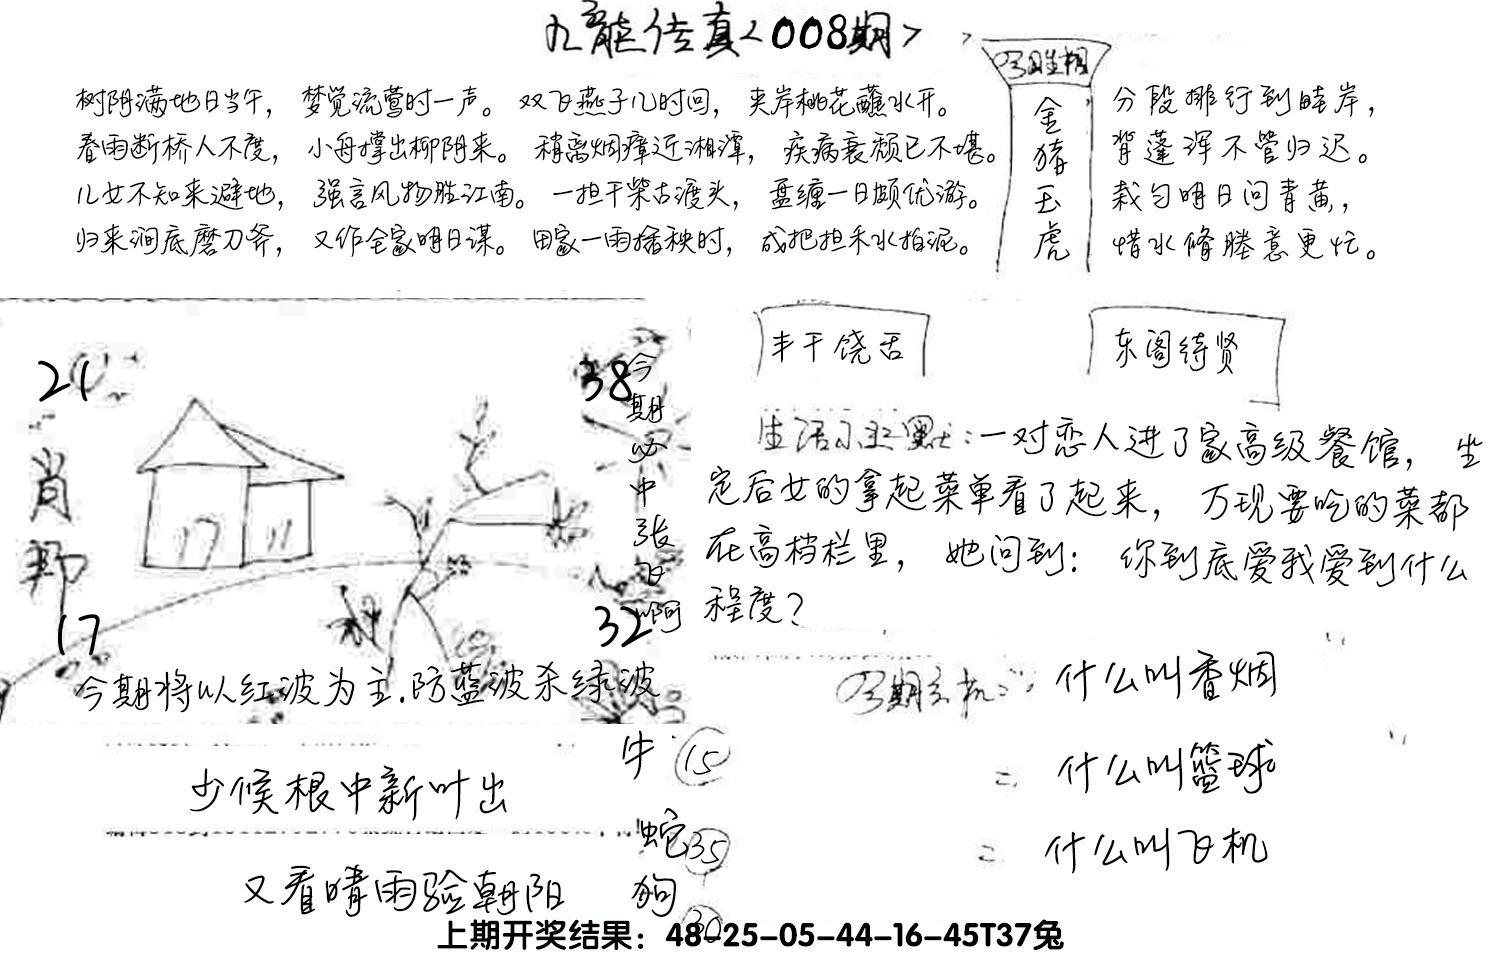 九龙传真<008期>
树阴满地日当午，梦觉流莺时一声。双飞燕子几时回，夹岸桃花蘸水开。
春雨断桥人不度，小舟撑出柳阴来。稍离烟瘴近湘潭，疾病衰颓已不堪。
儿女不知来避地，强言风物胜江南。一担干柴古渡头，盘缠一日颇优游。
归来涧底磨刀斧，又作全家明日谋。田家一雨插秧时，成把担禾水拍泥。
金
猪
玉
虎
分段排行到畦岸，
背蓬浑不管归迟。
栽匀明日问青黄，
惜水修塍意更忙。
21
38
肖
邦
17
32
今期必中张飞啊
今期将以红波为主.防蓝波杀绿波
丰干饶舌
东阁待贤
生活幽默:一对恋人进了家高级餐馆，坐
定后女的拿起菜单看了起来，万现要吃的菜都
在高档栏里，她问到：你到底爱我爱到什么
程度？
今期玄机
什么叫香烟
什么叫篮球
什么叫飞机
少候根中新叶出
又看晴雨验朝阳
牛 15
蛇 35
狗 30
上期开奖结果：48-25-05-44-16-45T37兔